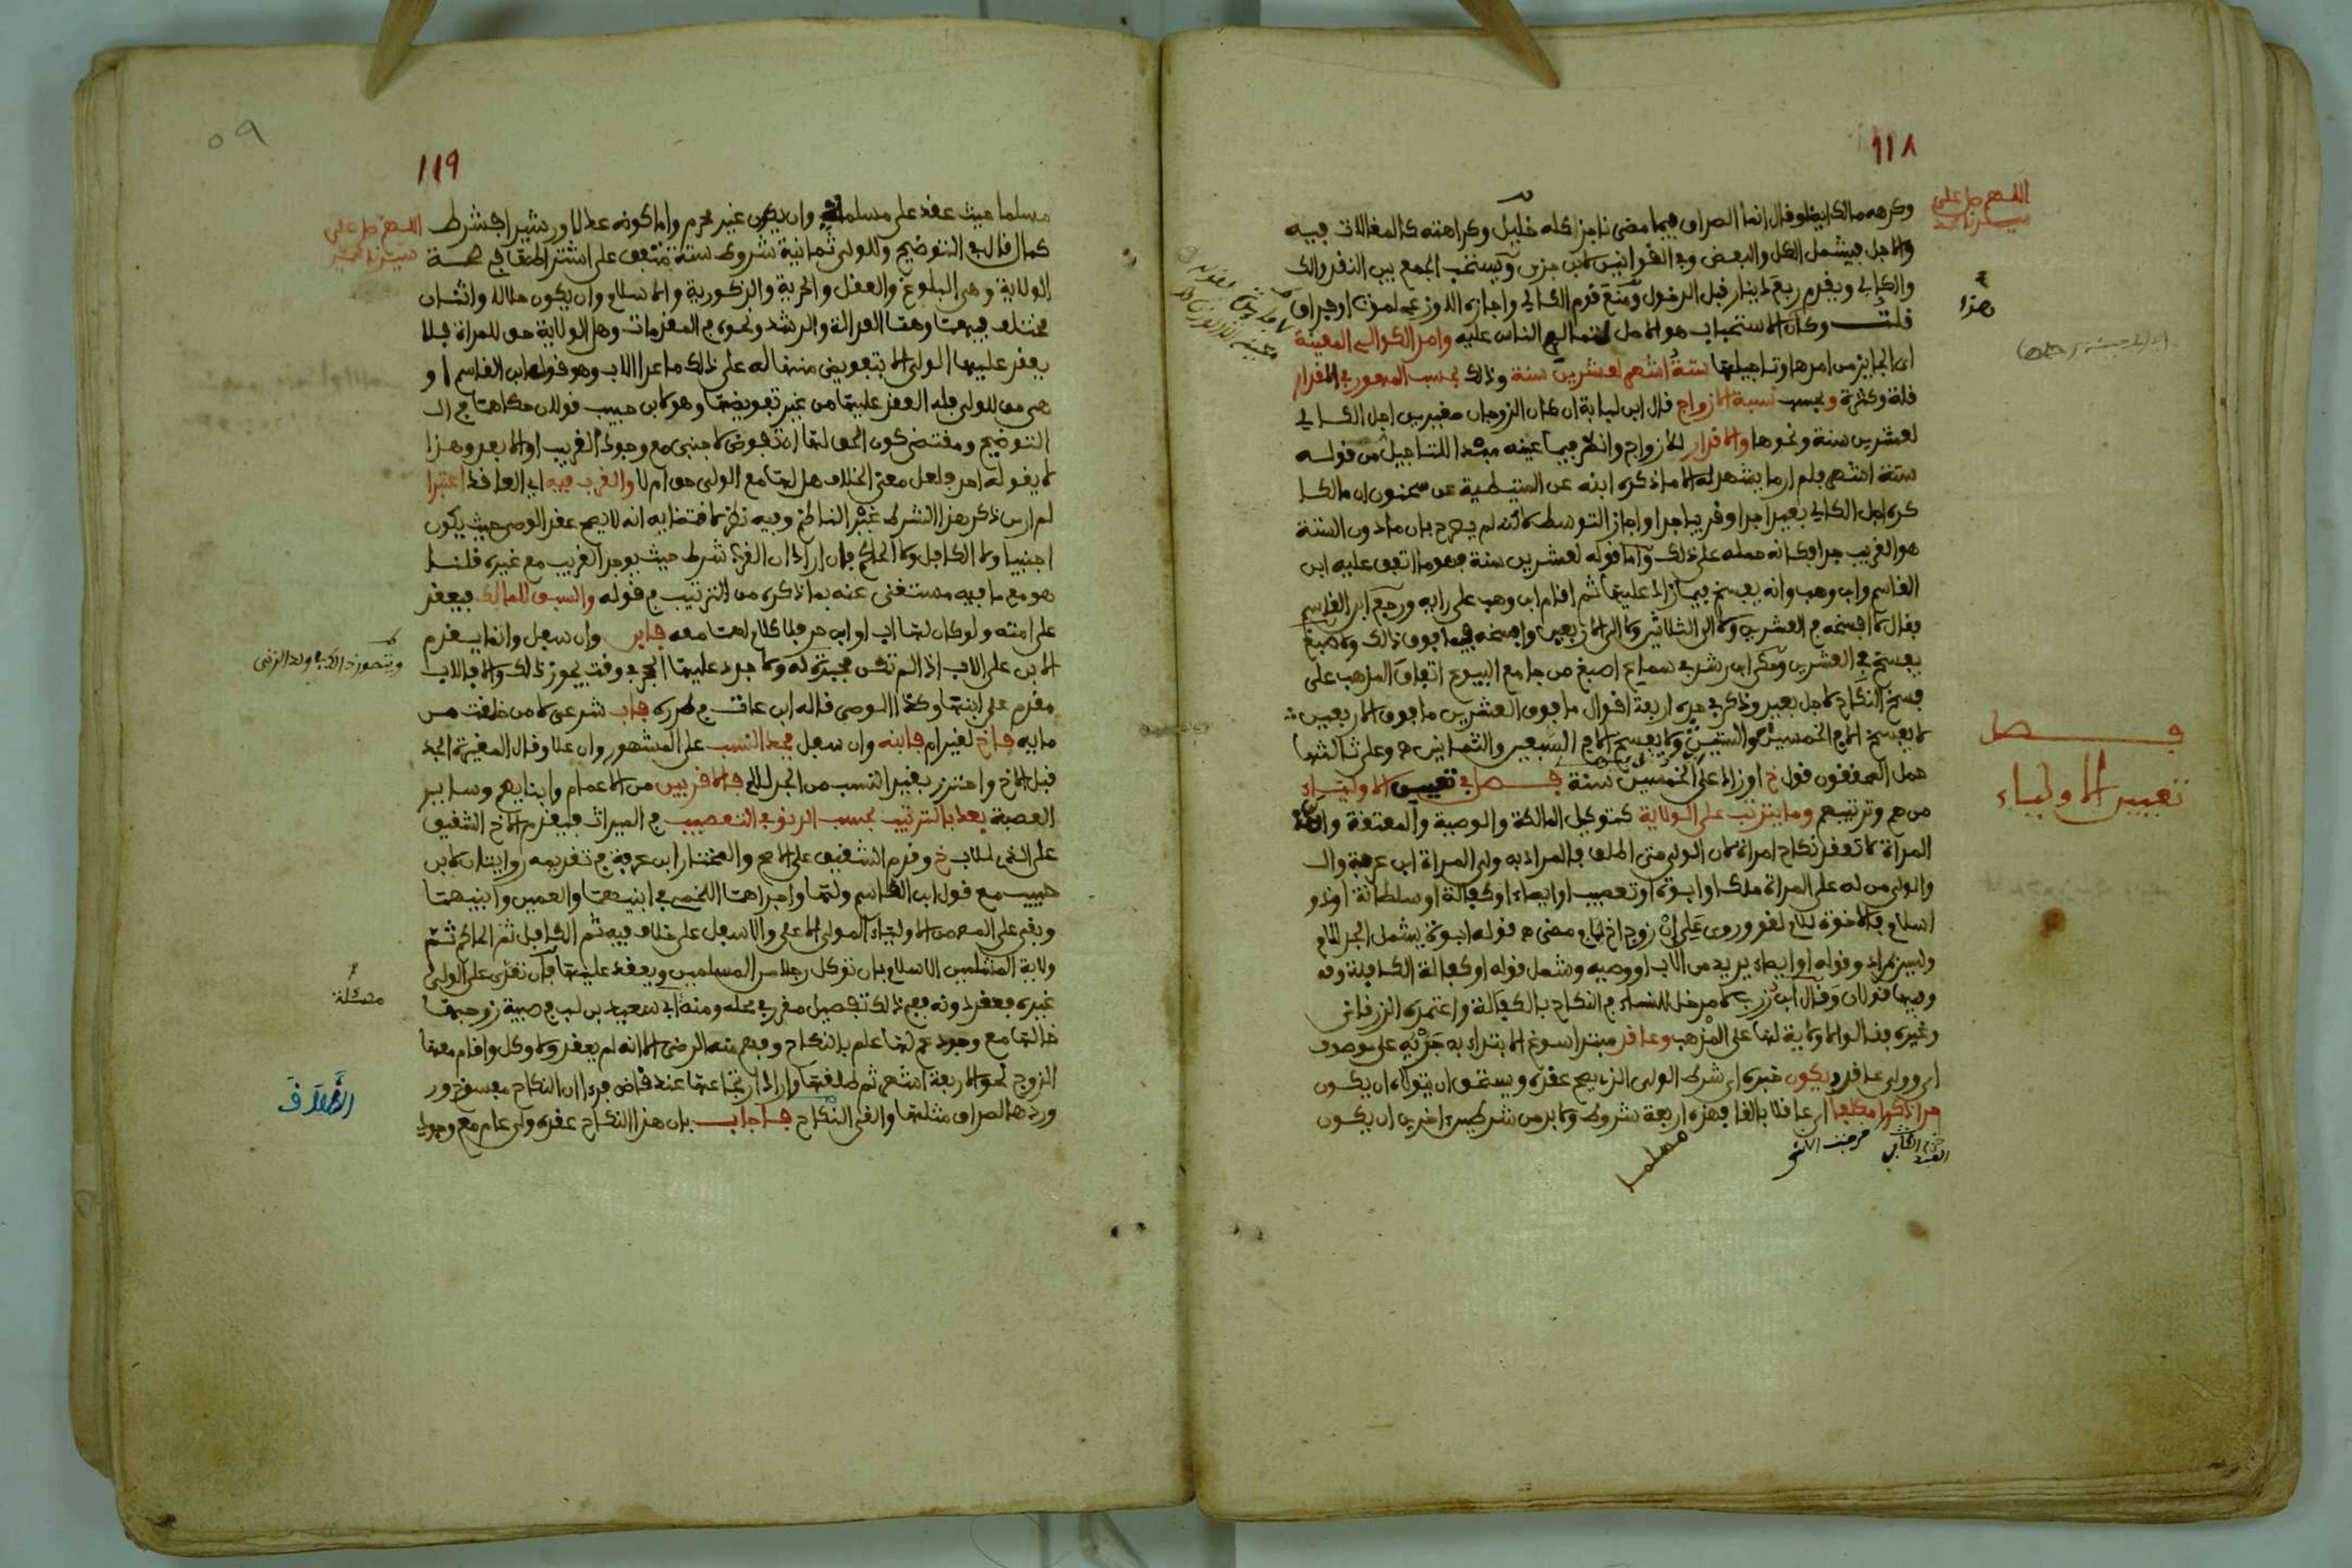 ١١٨
اللهم صل على
سيدنا محمد
وكرهه مالك ايضا وقال انما الصداق فيما مضى ناجز كله خليل وكراهته كالمغالات فيه
والاجل فيشمل الكل والبعض وفي القوانين لابن جزي ويستحب الجمع بين النقد والك
والكالي ويقدم ربع دينار قبل الدخول ومنع قوم الكالي واجازه الاوزعي لموت او فراق
هذا
قلت وكان الاستحباب هو الاصل الناس عليه وامد الكوالي المعينة
اي الجائز من امدها وتاجيلها ستة اشهر لعشرين سنة وذلك بحسب المهور في المقدار
قلة وكثرة وبحسب نسبة الازواج قال ابن لبابة ان كان الزوجان صغيرين اجل الكالي
لعشرين سنة ونحوها والاقدار للازواج وانظر فيما عينه مبتدا للتاجيل من قوله
ستة اشهر فلم ار ما يشهد له الا ما ذكره ابنه عن المتيطية عن سحنون ان مالكا
كره اجل الكالي بعيدا جدا وقريبا جدا واجاز التوسط لاكنه لم يصرح بان ما دون الستة
هو القريب جدا وكانه حمله على ذلك واما قوله لعشرين سنة فهو ما اتفق عليه ابن
القاسم وابن وهب وانه يفسخ فيما زاد عليها ثم اقام ابن وهب على رايه ورجع ابن القاسم
فقال لا افسخه في العشرين ولا الى الثلاثين ولا الى الاربعين وافسخه فيما فوق ذلك ولاصبغ
يفسخ في العشرين وحكى ابن رشد في سماع اصبغ من جامع البيوع اتفاق المذهب على
فسخ النكاح لاجل بعيد وذكر في حده اربعة اقوال ما فوق العشرين ما فوق الاربعين
لا يفسخ الا في الخمسين والستين ولا يفسخ الا في السبعين والثمانين وعلى ثالثها
حمل المحققون قول خ او زاد على الخمسين سنة فصل في تعيين الاولياء
فصل
تعيين الاولياء
من هم وترتيبهم وما يترتب على الولاية كتوكيل المالكة والوصية والمعتقة
المراة لا تعقد نكاح امراة لان الولي متى اطلق فالمراد به ولي المراة ابن عرفة وال
والولي من له على المراة ملك او ابوة او تعصيب او ايصاء او كفالة او سلطانة او ذو
اسلام فالاخوة للام لغو وروى علي ان زوج اخ لام مضى قوله ابوة يشمل الجد للام
وليس بمراد وقوله او ايصاء يريد من الاب او وصيه وشمل قوله او كفالة الكافلة وقد
وفيها قولان وقال ابن زرب لا مدخل للنساء في النكاح بالكفالة واعتمده الزرقاني
وغيره فقالوا لا ولاية لها على المذهب وعاقد مبتدا سوغ الابتداء به جريه على موصوف
اي وولي عاقد ويكون خبره اي شرط الولي الذي يصح عقده ويستحق ان يتولاه ان يكون
حرا ذكرا مكلفا اي عاقلا بالغا فهذه اربعة شروط ولا بد من شرطين اخرين ان يكون
مسلما
١١٩
٥٩
اللهم صل على
سيدنا محمد
مسلما حيث عقد على مسلمة وان يكون غير محرم واما كونه عدلا ورشيدا فشرط
كمال قال في التوضيح وللولي ثمانية شروط ستة متفق على اشتراطها في صحة
الولاية وهي البلوغ والعقل والحرية والذكورية والاسلام وان يكون حلالا واثنان
مختلف فيهما وهما العدالة والرشد ونحوه في المقدمات وهل الولاية حق للمراة فلا
يعقد عليها الولي الا بتفويض منها له على ذلك ما عدا الاب وهو قول ابن القاسم او
هي حق للولي فله العقد عليها من غير تفويضها وهو لابن حبيب قولان حكاهما في ال
التوضيح ومقتضى كون الحق لها ان تفوض لاجنبي مع وجود القريب او الابعد وهذا
لا يقوله احد فلعل معنى الخلاف هل لها مع الولي حق ام لا والقرب فيه اي العاقد اعتبرا
لم ار من ذكر هذا الشرط غير الناظم وفيه نظر لاقتضايه انه لا يصح عقد الوصي حيث يكون
اجنبيا ولا الكافل ولا الحاكم فان اراد ان القرب شرط حيث يوجد القريب مع غيره قلنا
هو مع ما فيه مستغنى عنه بما ذكره من الترتيب في قوله والسبق للمالك فيعقد
على امته ولو كان لها اب او ابن حر فلا كلام لهما معه فابن وان سفل وانما يقدم
ويتصور ذلك في ولد الزنى
الابن على الاب اذا لم تكن مجبرة له ولا جرد عليها الحجر في وقت يجوز ذلك والا فالاب
مقدم على ابنها وكذا الوصي قاله ابن عات في طرره فاب شرعي لا من خلقت من
مايه فاخ لغير ام فابنه وان سفل فجد النسب على المشهور وان علا وقال المغيرة الجد
قبل الاخ واحترز بقيد النسب من الجد للام فالاقربين من الاعمام وابنايهم وساير
العصبة بعد بالترتيب بحسب الدنو في التعصيب في الميراث فيقدم الاخ الشقيق
على الذي للاب خ وقدم الشقيق على الاصح والمختار ابن عرفة في تقديمه روايتان لابن
حبيب مع قول ابن القاسم ولها واجراهما اللخمي في ابنيهما والعمين وابنيهما
وبقي على المص من الاولياء المولى الاعلى والاسفل على خلاف فيه ثم الكافل ثم الحاكم ثم
ولاية المسلمين الاسلام بان توكل رجلا من المسلمين ويعقد عليها فان تعدى على الولي
مسئلة
غيره فعقد دونه ففي ذلك تفصيل مقرر في محله ومنه ابي سعيد بن لب في صبية زوجها
خالها مع وجود عم لها علم بالنكاح وفهم منه الرضى الا انه لم يعقد ولا وكل واقام معها
الزوج نحو الاربعة اشهر ثم طلقها واراد ارتجاعها عند قاض فراى ان النكاح مفسوخ ورد
الطلاق
ورد هذا الصداق مثلها والغى النكاح فاجاب بان هذا النكاح عقده ولي عام مع وجود